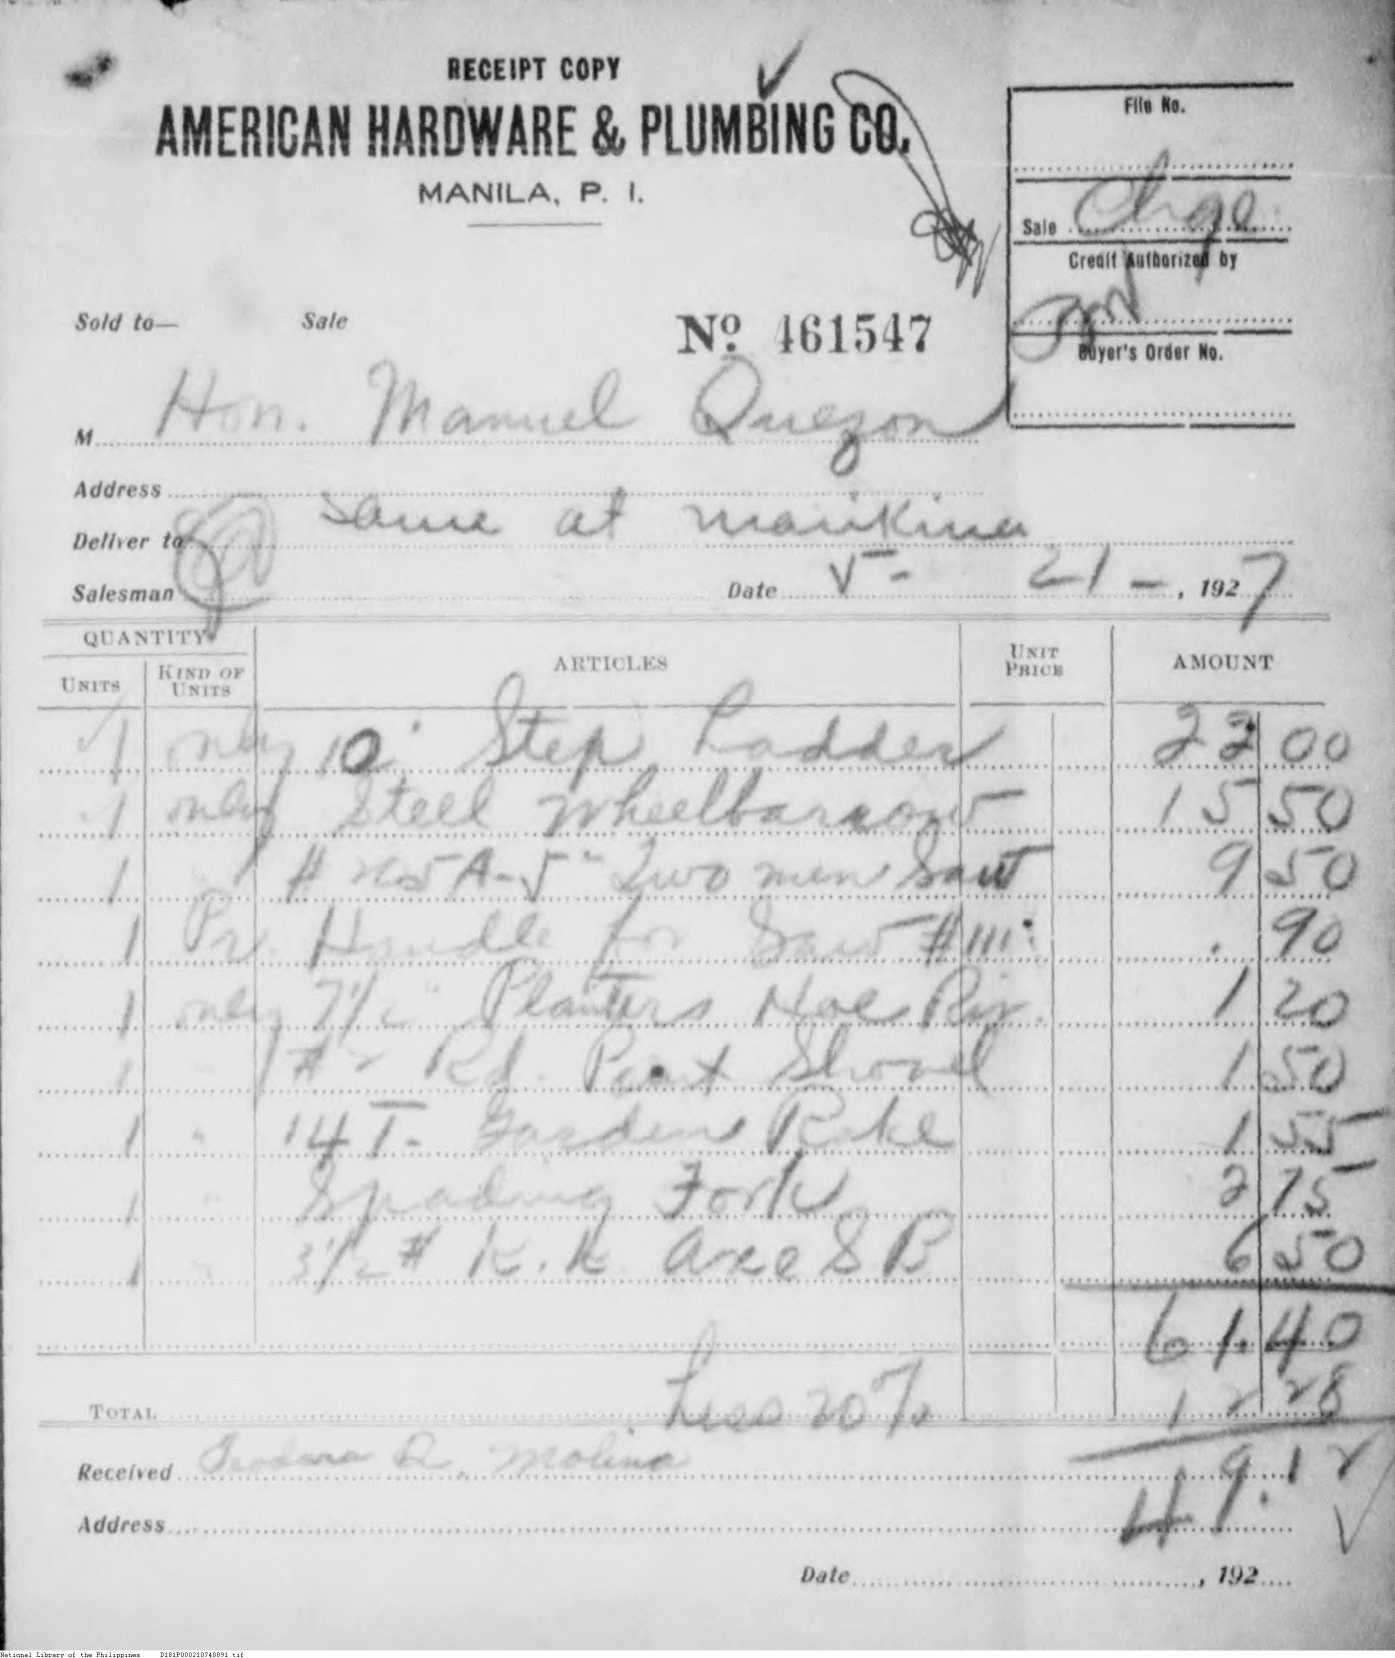 RECEIPT COPY
AMERICAN HARDWARE & PLUMBING CO.
MANILA, P. I.
File No.
Sale Chge
Credit Authorized by
Buyer's Order No.
Sold to— Sale
No. 461547
M Hon. Manuel Quezon
Address
same at Marikina
Deliver to
Salesman Date 5- 21-, 1927
QUANTITY ARTICLES UNIT PRICE AMOUNT
UNITS KIND OF UNITS
1 only 10' Step Ladder 22 00
1 only Steel Wheelbarrow 15 50
1 " # 225 A-5" Two men Saw 9 50
1 Pr. Handle for Saw #111. . 90
1 only 7 1/2" Planters Hoe Riv. 1 20
1 " # 2 Rd. Point Shovel 1 50
1 " 14 T- Garden Rake 1 55
1 " Spading Fork 2 75
1 " 3 1/2 # K. K Axe S B 6 50
61.40
Less 20% 12 28
TOTAL
49.12
Received Teodora R. Molina
Address
Date , 192
National Library of the Philippines D181P000210740891.tif